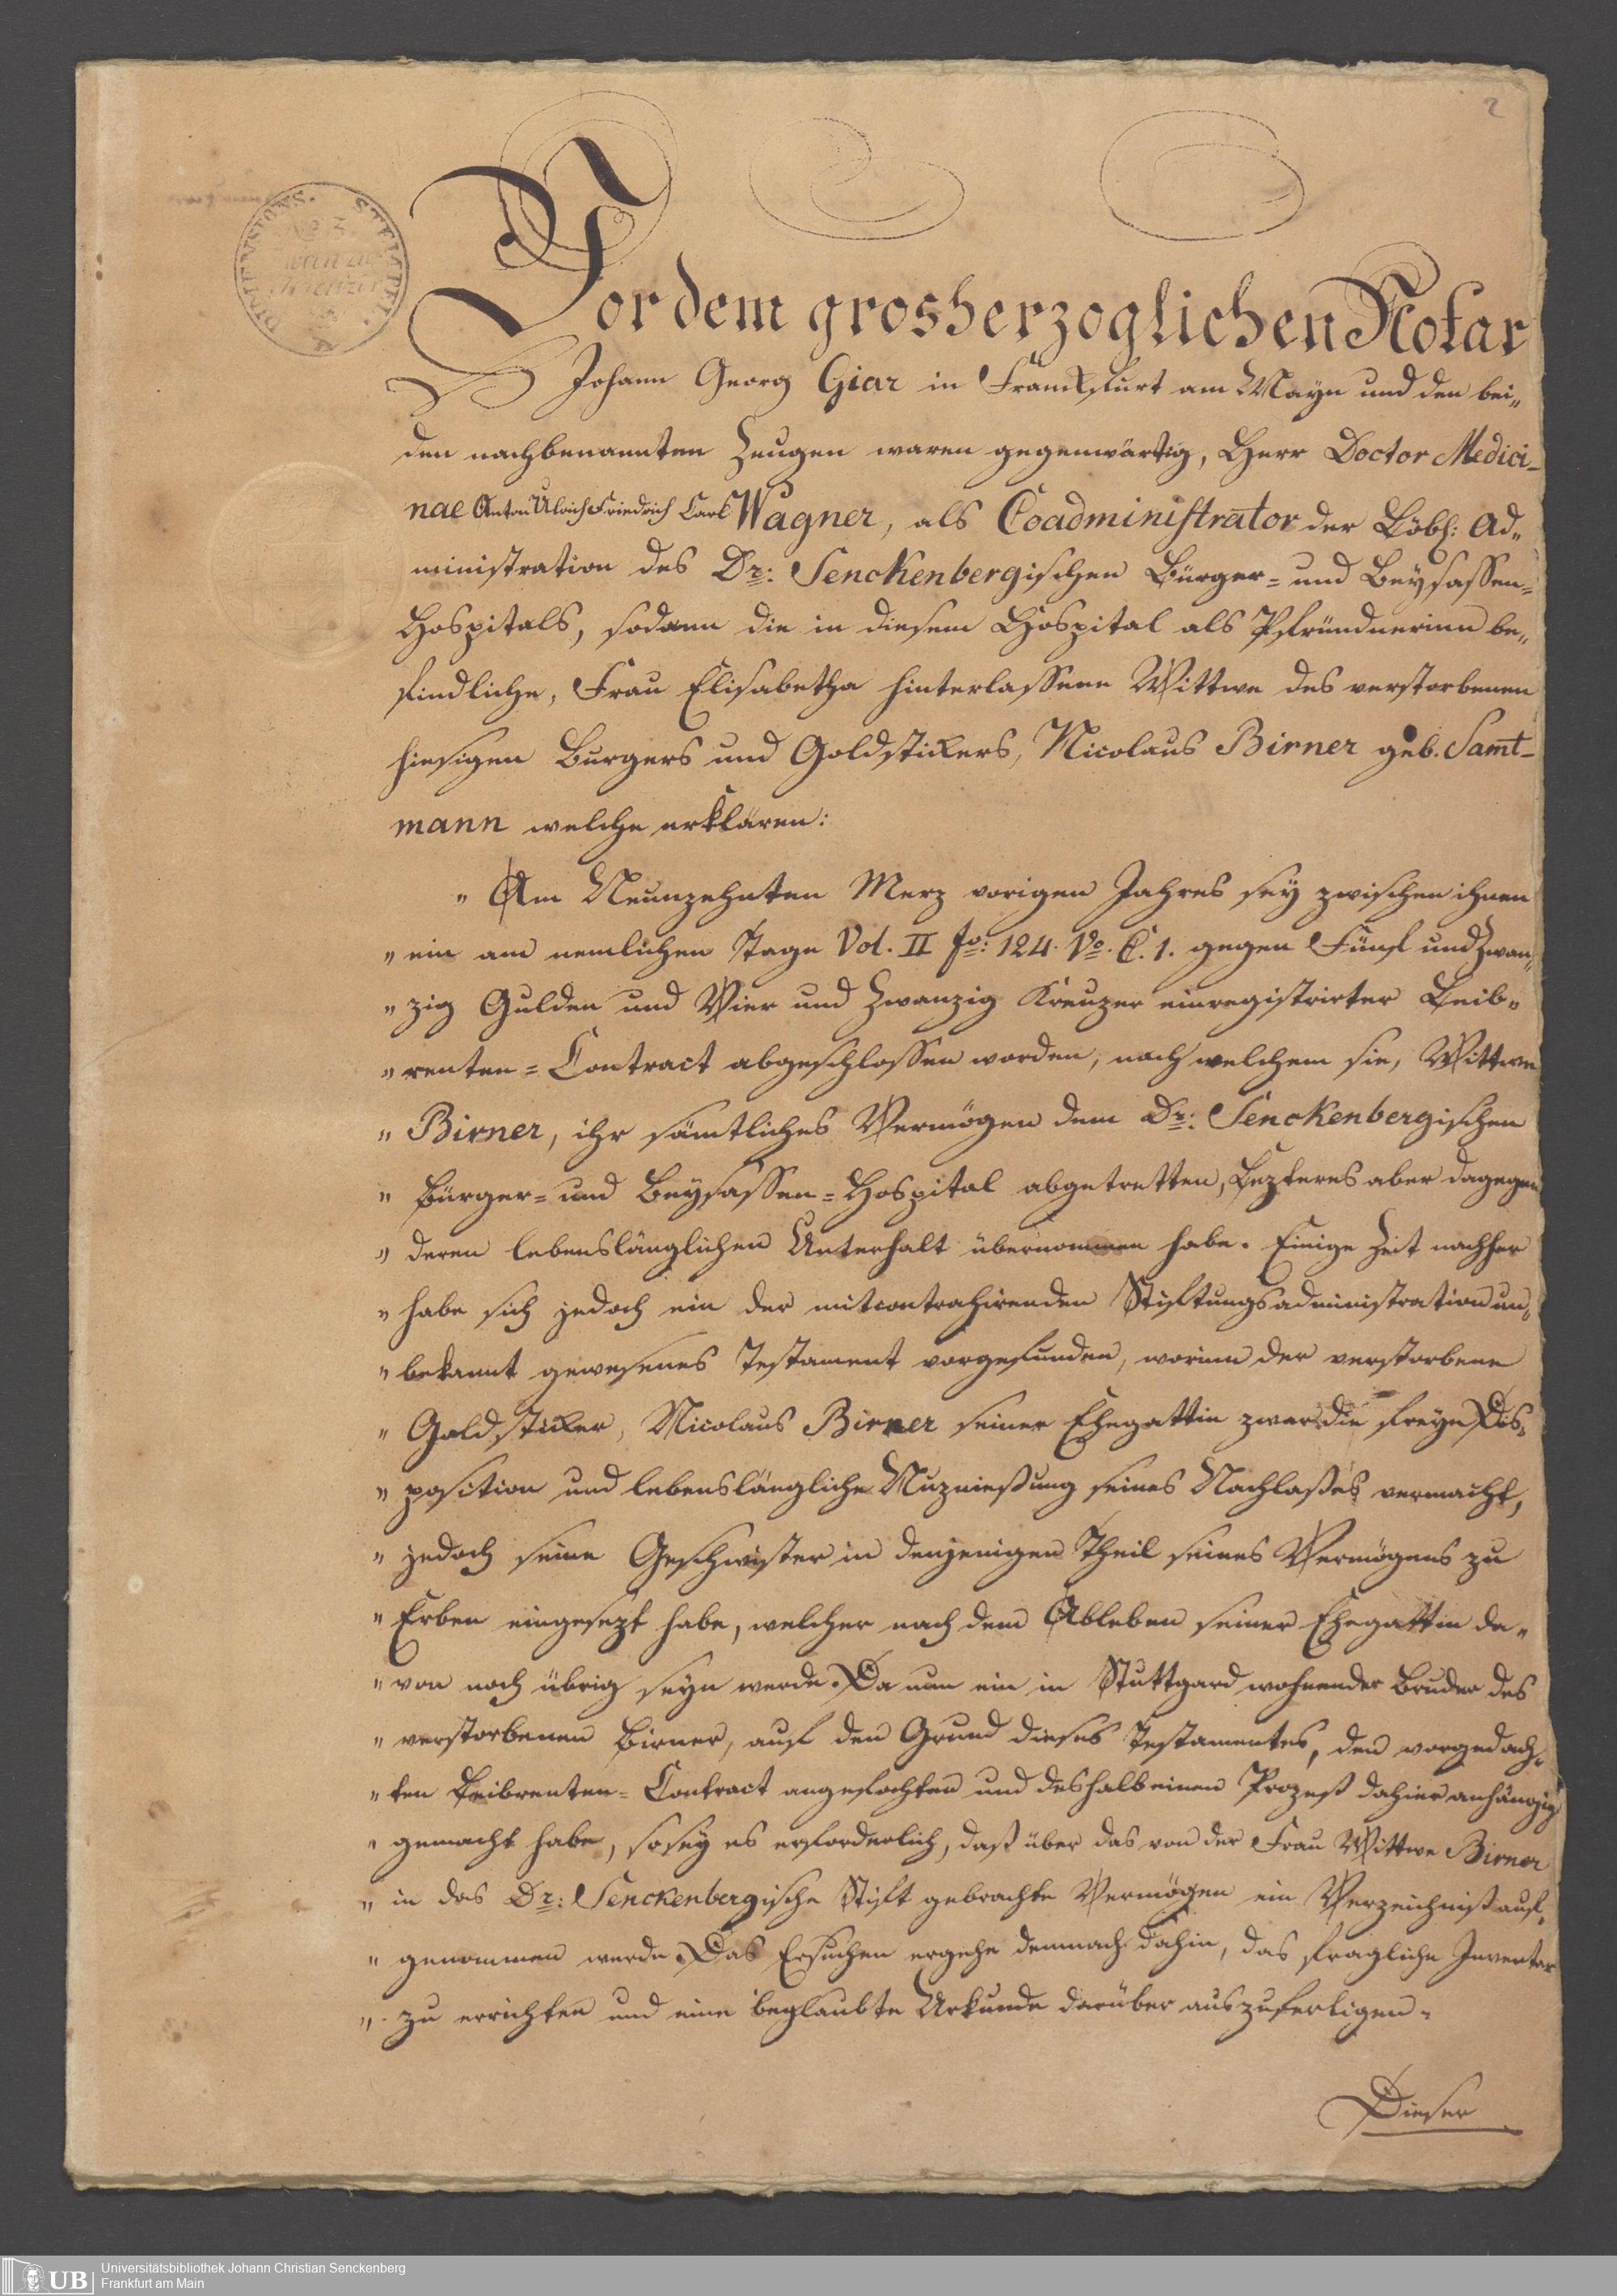 2
DIMENSIONS. STEMPEL.
No 3.
Vor dem grosherzoglichen Notar
Johann Georg Giar in Franckfurt am Mayn und den bei„
den nachbenannten Zeugen waren gegenwärtig, Herr Doctor Medici-
nae Anton Ulrich Friedrich Carl Wagner, als Coadministrator der Löbl: Ad„
ministration des Dr: Senckenbergischen Bürger= und Beysassen=
Hospitals, sodann die in diesem Hospital als Pfründnerinn be„
findliche, Frau Elisabetha hinterlassene Wittwe des verstorbenen
hiesigen Burgers und Goldstickers, Nicolaus Birner geb. Samt-
mann welche erklären:
" Am Neunzehnten Merz vorigen Jahres sey zwischen ihnen
" ein am nemlichen Tage Vol. II fo: 124. Vo. C. 1. gegen Fünf und Zwan„
" zig Gulden und Vier und Zwanzig Kreuzer einregistrirter Leib„
" renten=Contract abgeschlossen worden, nach welchem sie, Wittwe
" Birner, ihr sämtliches Vermögen dem Dr: Senckenbergischen
" Bürger= und Beysassen=Hospital abgetretten, Lezteres aber dagegen
" deren lebenslänglichen Unterhalt übernommen habe. Einige Zeit nachher
" habe sich jedoch ein der mitcontrahirenden Stiftungsadministration un„
" bekannt gewesenes Testament vorgefunden, worinn der verstorbene
" Goldsticker, Nicolaus Birner seiner Ehegattin zwar die freye Dis„
" position und lebenslängliche Nuznießung seines Nachlaßes vermacht,
" jedoch seine Geschwister in denjenigen Theil seines Vermögens zu
" Erben eingesezt habe, welcher nach dem Ableben seiner Ehegattin da„
" von noch übrig seyn werde. Da nun ein in Stuttgard wohnender Bruder des
" verstorbenen Birner, auf den Grund dieses Testamentes, den vorgedach„
" ten Leibrenten=Contract angefochten und deshalb einen Prozeß dahier anhängig
" gemacht habe, so sey es erforderlich, daß über das von der Frau Wittwe Birner
" in das Dr: Senckenbergische Stift gebrachte Vermögen ein Verzeichniß auf„
" genommen werde. Das Ersuchen ergehe demnach dahin, das fragliche Inventar
" zu errichten und eine beglaubte Urkunde darüber auszufertigen.
Dieser
UB Universitätsbibliothek Johann Christian Senckenberg
Frankfurt am Main